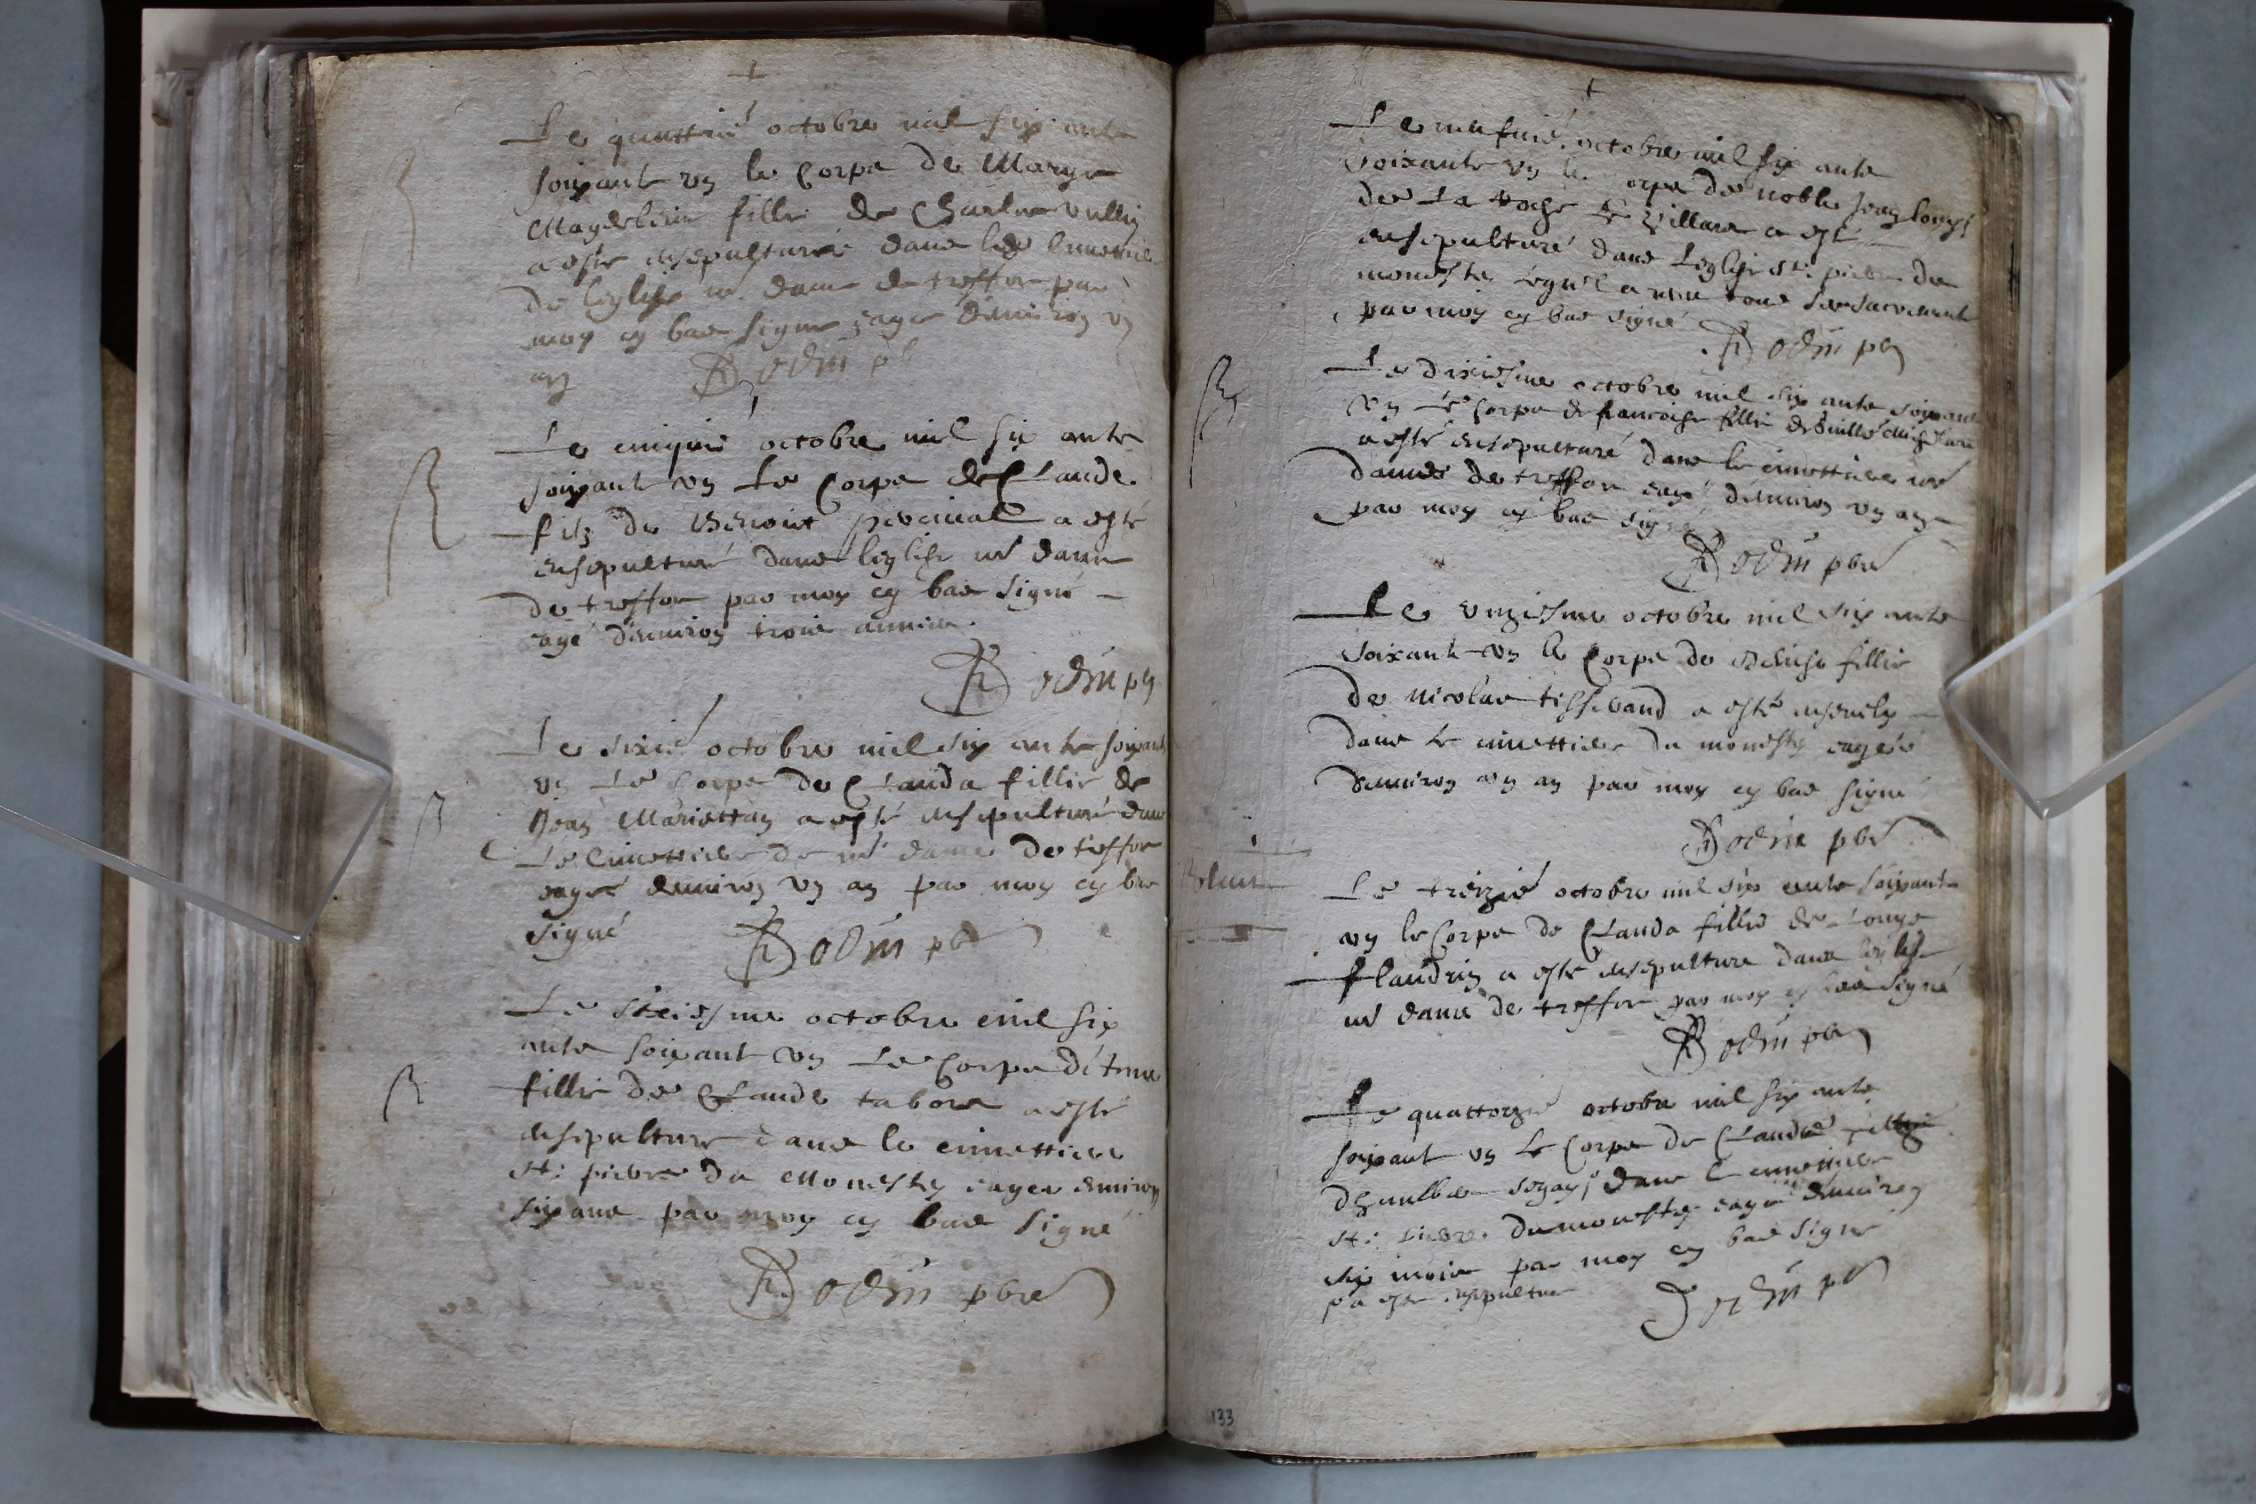 Le quattrié octobre mil six cents
soixante vn le Corps de Marye
Magdeleine fillie de Charles vullin
a esté ensepulturée dans le
de leglise nre dame de treffor par
moy cy bas signe eagée denuiron vn
an
Bodin pb
Le cinquié octobre mil six cents
soixante vn Le Corps de Claude
filz de Benoit percinal a esté
ensepulturé dans leglise nre dame
de treffor par moy cy bas signé
eagé denuiron trois annees.
Bodin pb
Le sixié octobre mil six cents soixante
vn Le Corps de Clauda fillie de
Jean Mariettan a esté ensepulturé dans
Le Cimettiere de nre dame de treffor
eagée denuiron vn an par moy cy bas
signé
Bodin pbr
Le octobre mil six
cents soixante vn Le Corps
fillie de Claude tabore a esté
ensepulture dans le cimettiere
st: pierre du Monesty eagee enuiron
six ans par moy cy bas signé
Bodin pbre
Le neufuié octobre mil six cents
soixante vn le corps de noble Jean louys
de La roche Villars a esté
ensepulturé dans Leglise st: pierre du
monesty a receu tous les sacrements
par moy cy bas signé
Bodin pbr
Le dixiesme octobre mil six cents soixante
vn Le Corps de francoise fillie de
a esté ensepulturé dans le cimettiere nre
dame de treffor eagé denuiron vn an
par moy cy bas signé
Bodin pbre
Le vnziesme octobre mil six cents
soixante vn le Corps de Benoiste fillie
de nicolas tisserand a esté enseuely
dans le cimettiere du monesty eagéé
denuiron vn an par moy cy bas signé
Bodin pbre
Le treizié octobre mil six cents soixante
vn le Corps de Clauda fillie de Louys
flandrin a esté ensepulture dans leglise
nre dame de treffor par moy cy bas signé
Bodin pbre
Le quattorzié octobre mil six cents
soixante vn Le Corps de Claude
dans le cimettiere
st: pierre du monesty eagé denuiron
six mois par moy cy bas signé
a este ensepulture
Bodin pbr
133